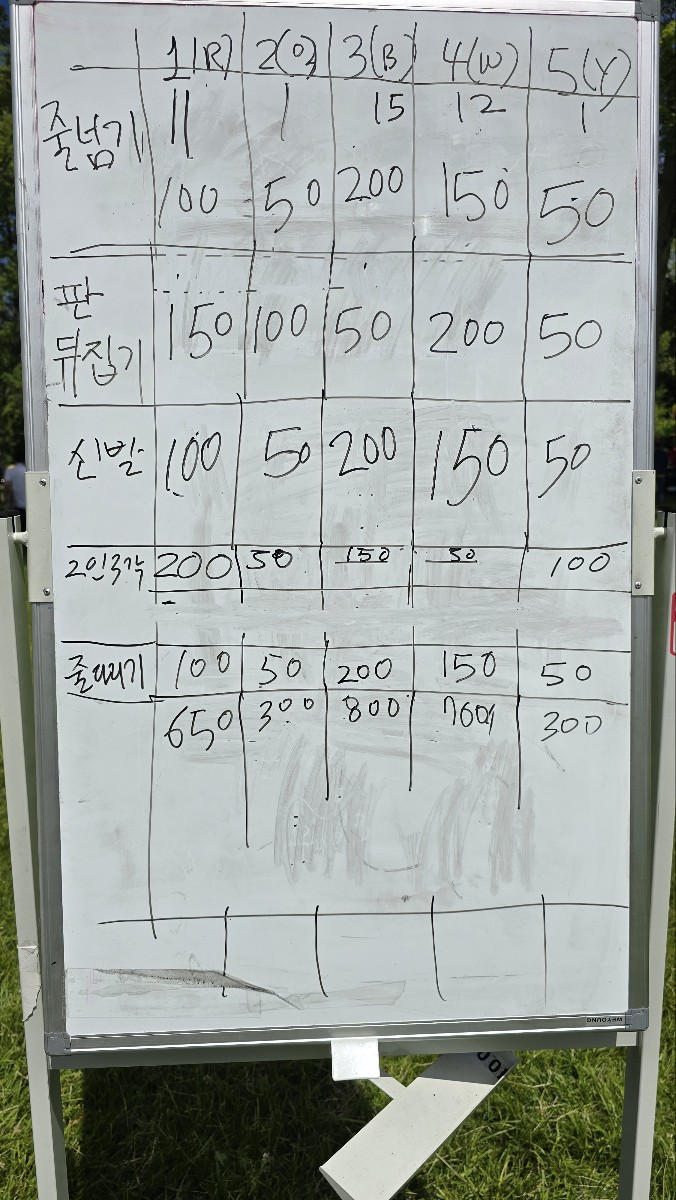 1(R) 2(O) 3(B) 4(W) 5(Y)
줄넘기 11 1 15 12 1
100 50 200 150 50
판
뒤집기 150 100 50 200 50
신발 100 50 200 150 50
2인3각 200 50 150 50 100
줄다리기 100 50 200 150 50
650 300 800 300
WEYOUNG